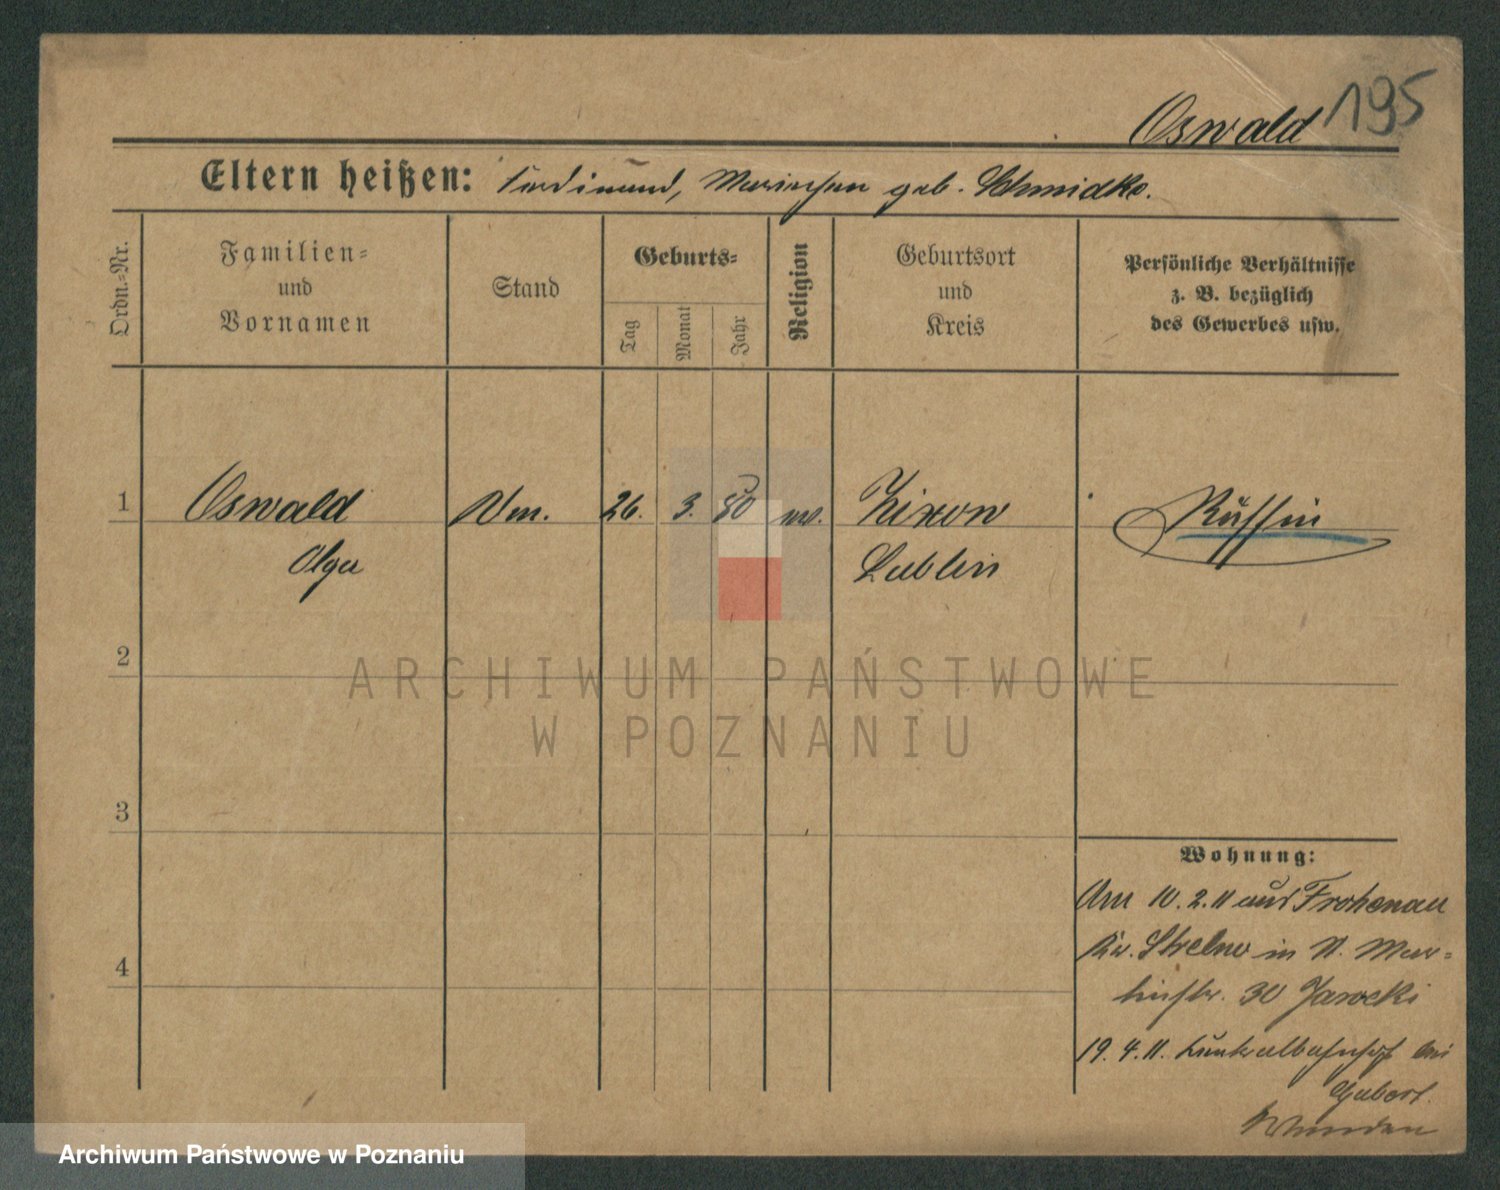 195
Oswald
Eltern heißen: Ferdinand, Marianna geb. Schmidke.
Ordn.-Nr.
Familien-
und
Vornamen
Stand
Geburts-
Tag
Monat
Jahr
Religion
Geburtsort
und
Kreis
Persönliche Verhältnisse
z. B. bezüglich
des Gewerbes usw.
1 Oswald 26. 3. 80 Lublin
Olga
Russin
2
3
4
Wohnung:
Am 10.2.11 aus Frohenau
Kr. Strelno in
30 Jarocki
19.4.11. bei
ARCHIWUM PAŃSTWOWE
W POZNANIU
Archiwum Państwowe w Poznaniu